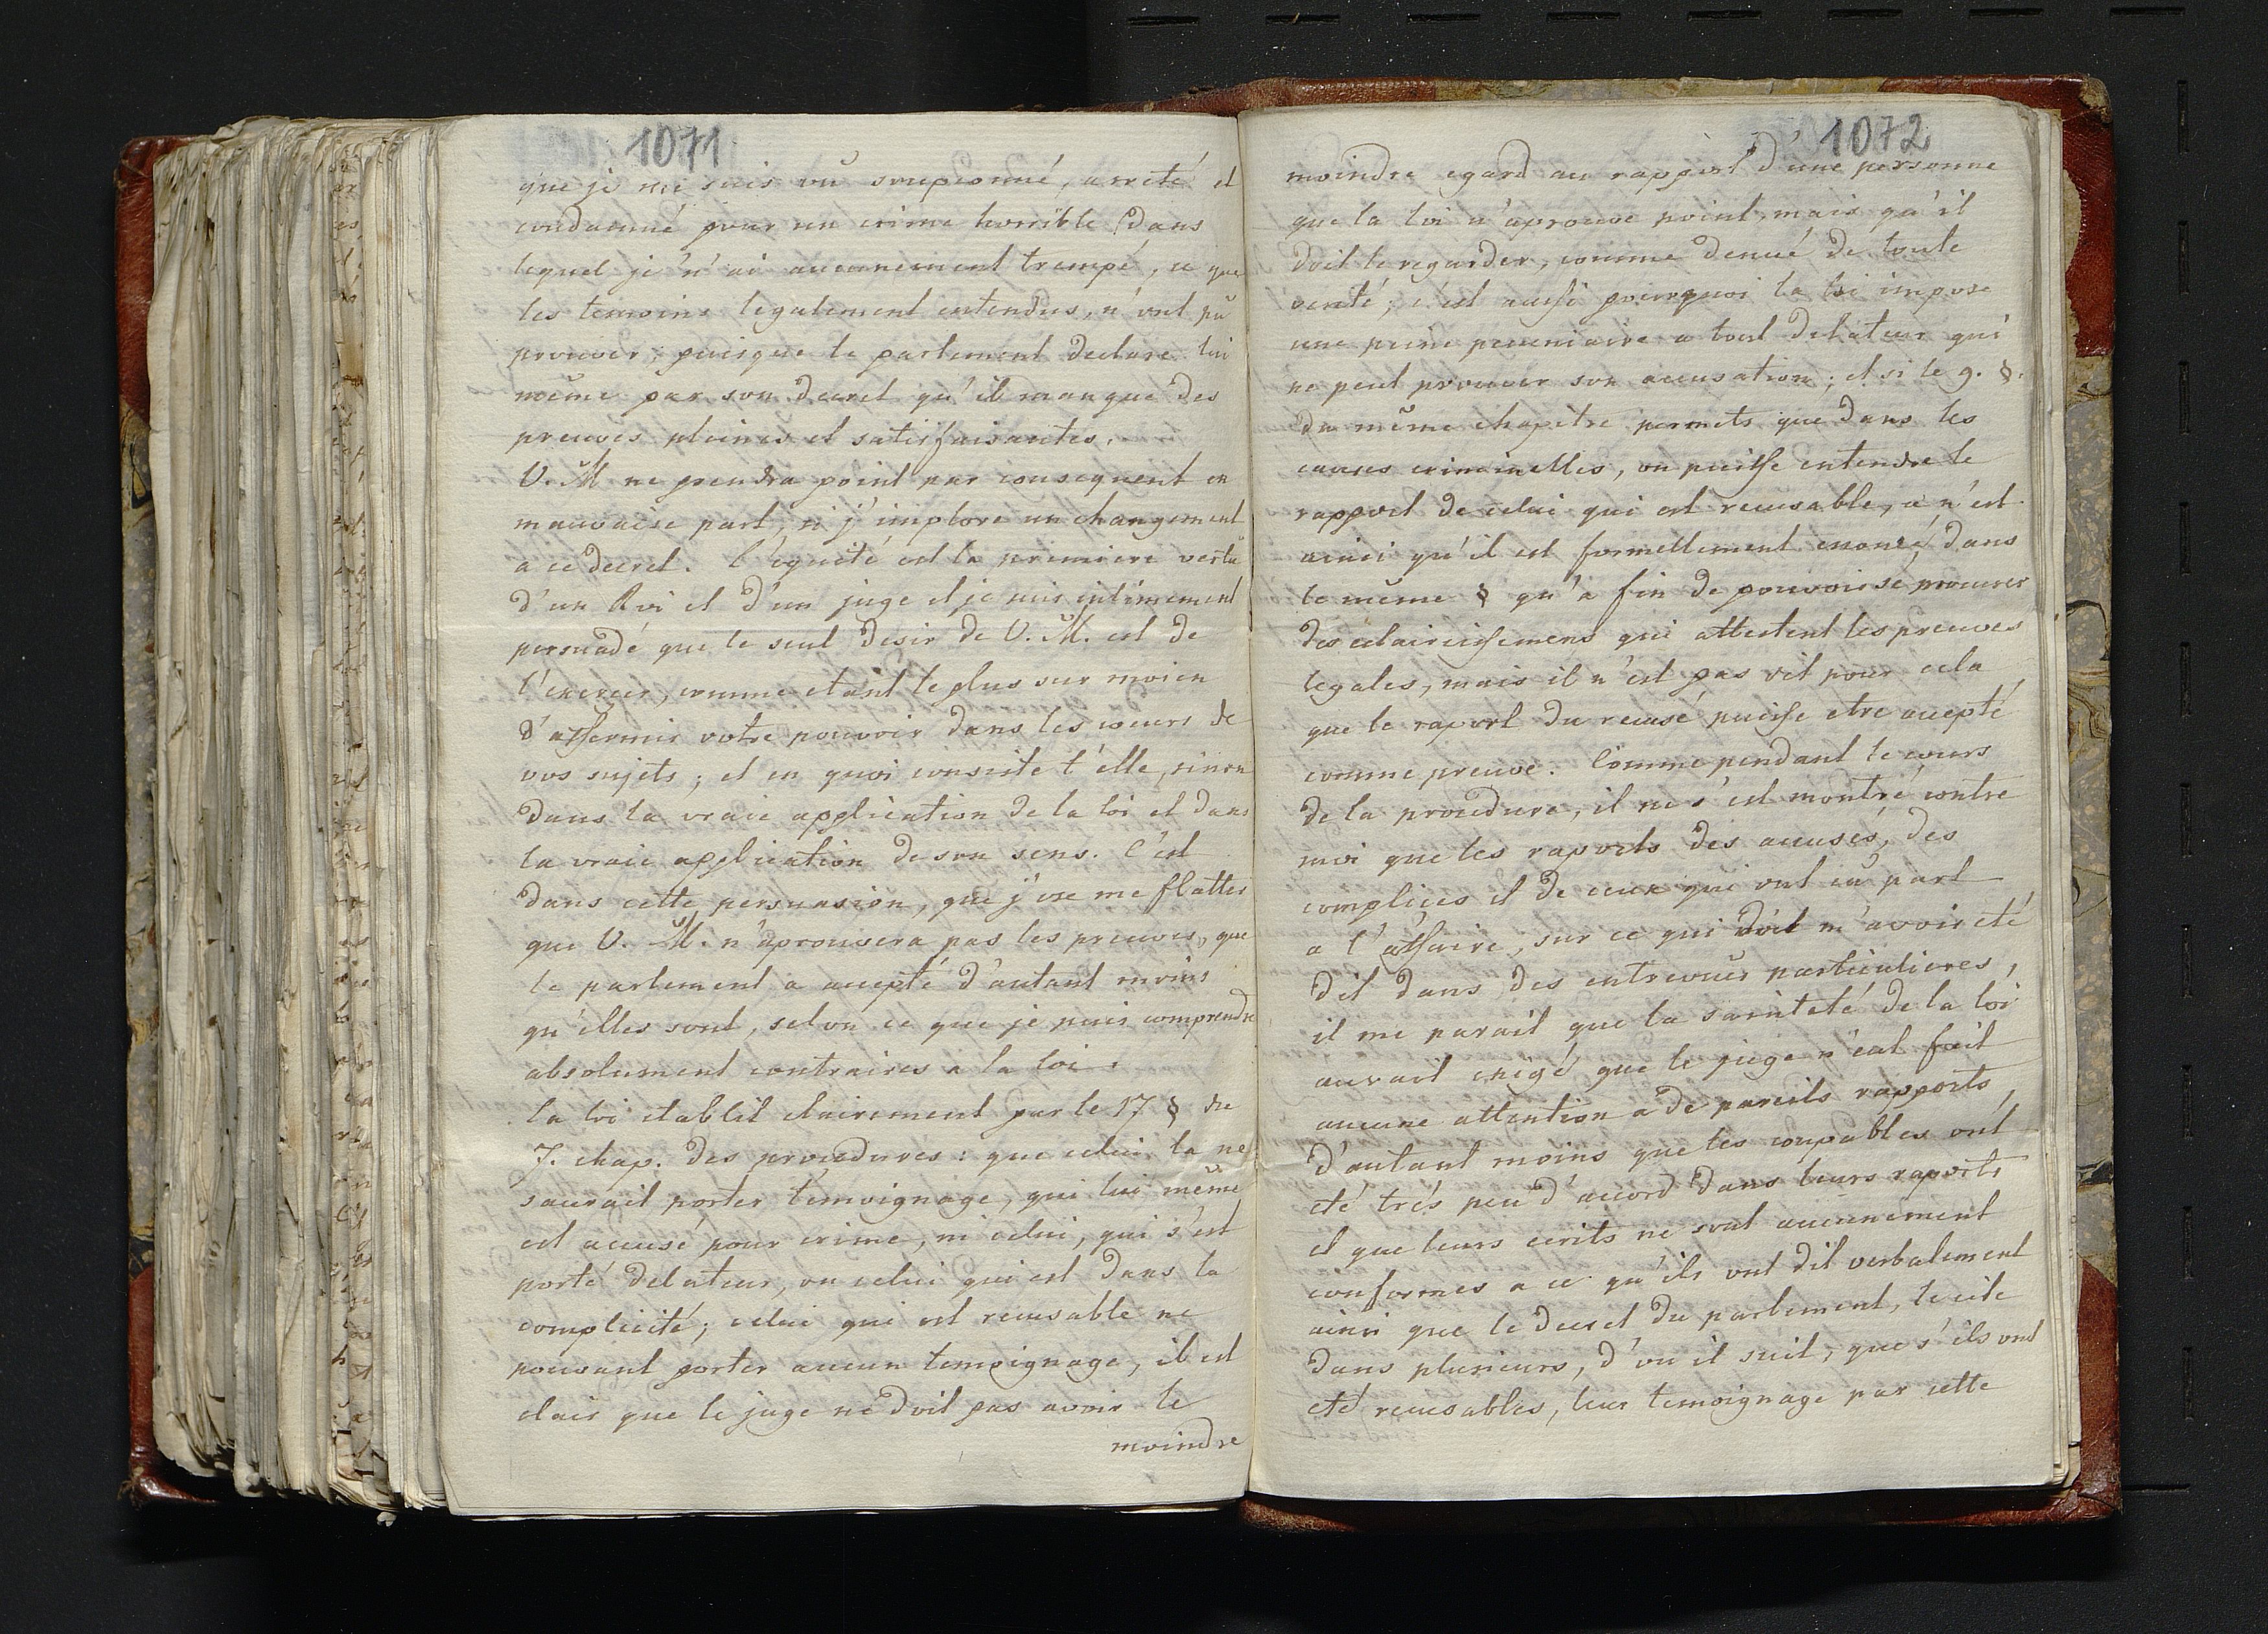 1071
que je me suis vû soupçonné, arreté et
condamné pour un crime horrible, dans
lequel je n'ai aucunement trempé, ce que
les temoins legalement entendus, n'ont pu
prouver; puisque le parlement declare lui
même par son decret qu'il manque des
preuves pleines et satisfaisantes.
V. M ne prendra point par consequent en
mauvaise part, si j'implore un changement
a ce decret. L'équité est la premiere vertu
d'un Roi et d'un juge et je suis intimement
persuadé que le seul desir de V. M. est de
l'exercer, comme etant le plus sur moien
d'affermir votre pouvoir dans les coeurs de
vos sujets; et en quoi consiste t'elle, sinon
dans la vraie application de la loi et dans
la vraie application de son sens. C'est
dans cette persuasion, que j'ose me flatter
que V. M. n'aprouvera pas les preuves, que
le parlement a accepté d'autant moins
qu'elles sont, selon ce que je puis comprendre
absolument contraires a la loi.
La loi etablit clairement par le 17 § du
7. chap. des procedures: que celui la ne
saurait porter témoignage, qui lui même
est accusé pour crime, ni celui, qui s'est
porté delateur, ou celui qui est dans la
complicité; celui qui est recusable ne
pouvant porter aucun temoignage, il est
clair que le juge ne doit pas avoir le
moindre
1072
moindre egard au rapport d'une personne
que la loi n'aprouve point, mais qu'il
doit le regarder, comme denué de toute
verité; c'est aussi pourquoi la loi impose
une peine pecuniaire a tout delateur qui
ne peut prouver son accusation; et si le 9. §.
du même chapitre permets que dans les
causes criminelles, on puisse entendre le
rapport de celui qui est recusable, ce n'est
ainsi qu'il est formellement enoncé dans
le même § qu'a fin de pouvoir se procurer
des eclaircissemens qui attestent les preuves
legales, mais il n'est pas dit pour cela
que le raport du recusé puisse etre accepté
comme preuve. Comme pendant le cours
de la procedure, il ne s'est montré contre
moi que les raports des accusés, des
complices et de ceux qui ont eu part
a l'affaire, sur ce qui doit m'avoir eté
dit dans des entrevues particulieres,
il me parait que la sainteté de la loi
aurait exigé que le juge n'eut fait
aucune attention a de pareils rapports,
d'autant moins que les coupables ont
eté trés peu d'accord dans leurs raports
et que leurs ecrits ne sont aucunement
conformes a ce qu'ils ont dit verbalement
ainsi que le decret du parlement, le cite
dans plusieurs, d'ou il suit, que s'ils ont
eté recusables, leur temoignage par cette